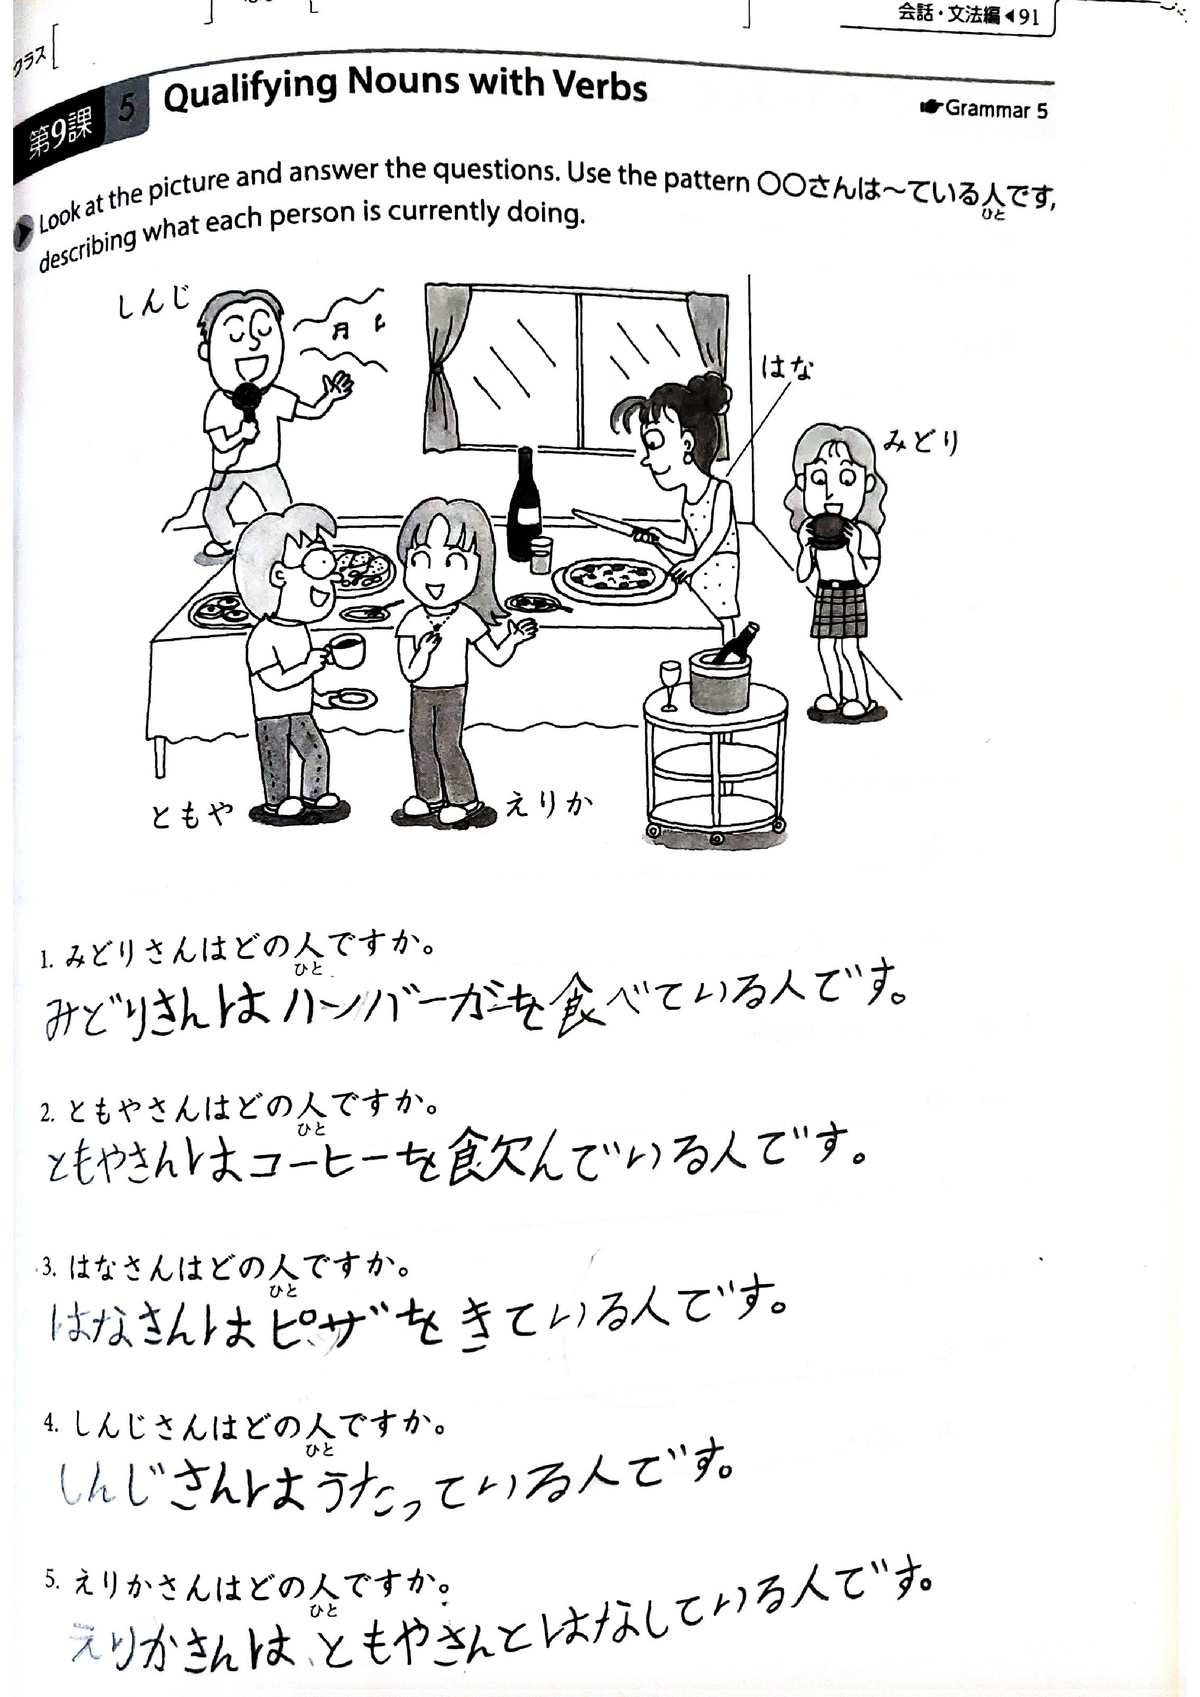 会話・文法編◀91
クラス
第9課 5 Qualifying Nouns with Verbs
☛Grammar 5
Look at the picture and answer the questions. Use the pattern 〇〇さんは〜ている人です,
ひと
describing what each person is currently doing.
しんじ
はな
みどり
ともや
えりか
1. みどりさんはどの人ですか。
ひと
みどりさんはハンバーガーを食べている人です。
2. ともやさんはどの人ですか。
ひと
ともやさんはコーヒーを飲んでいる人です。
3. はなさんはどの人ですか。
ひと
はなさんはピザをきている人です。
4. しんじさんはどの人ですか。
ひと
しんじさんはうたっている人です。
5. えりかさんはどの人ですか。
ひと
えりかさんは、ともやさんとはなしている人です。